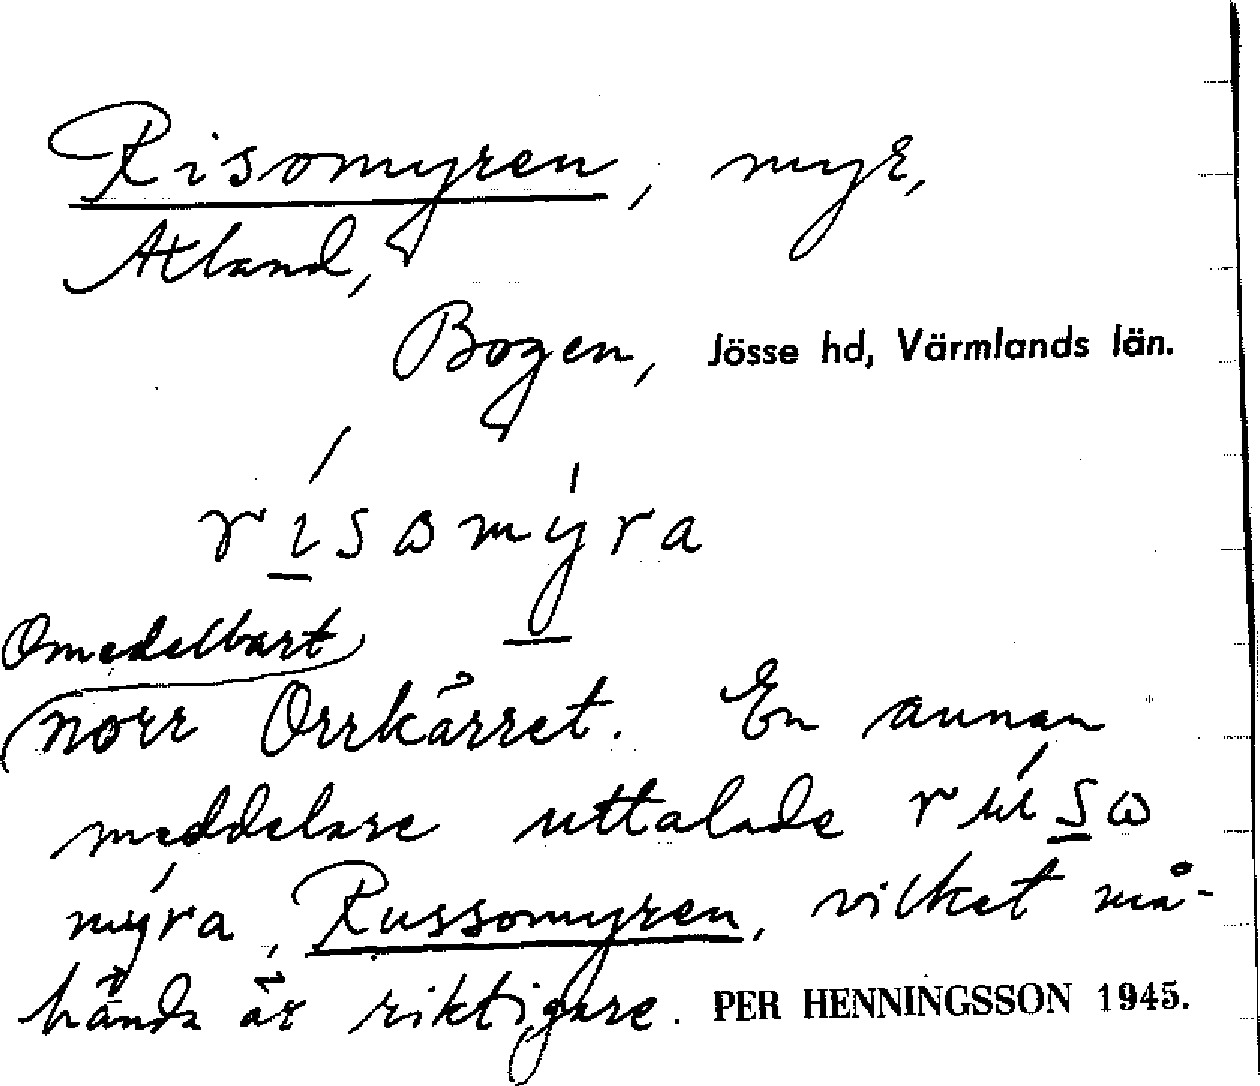 Risomyren, myr,
Atland,
Bogen, Jösse hd, Värmlands län.
rísωmýra
Omedelbart
norr Orrkärret. En annan
meddelare uttalade rusω
mýra, Russomyren, vilket må-
hända är riktigare. PER HENNINGSSON 1945.